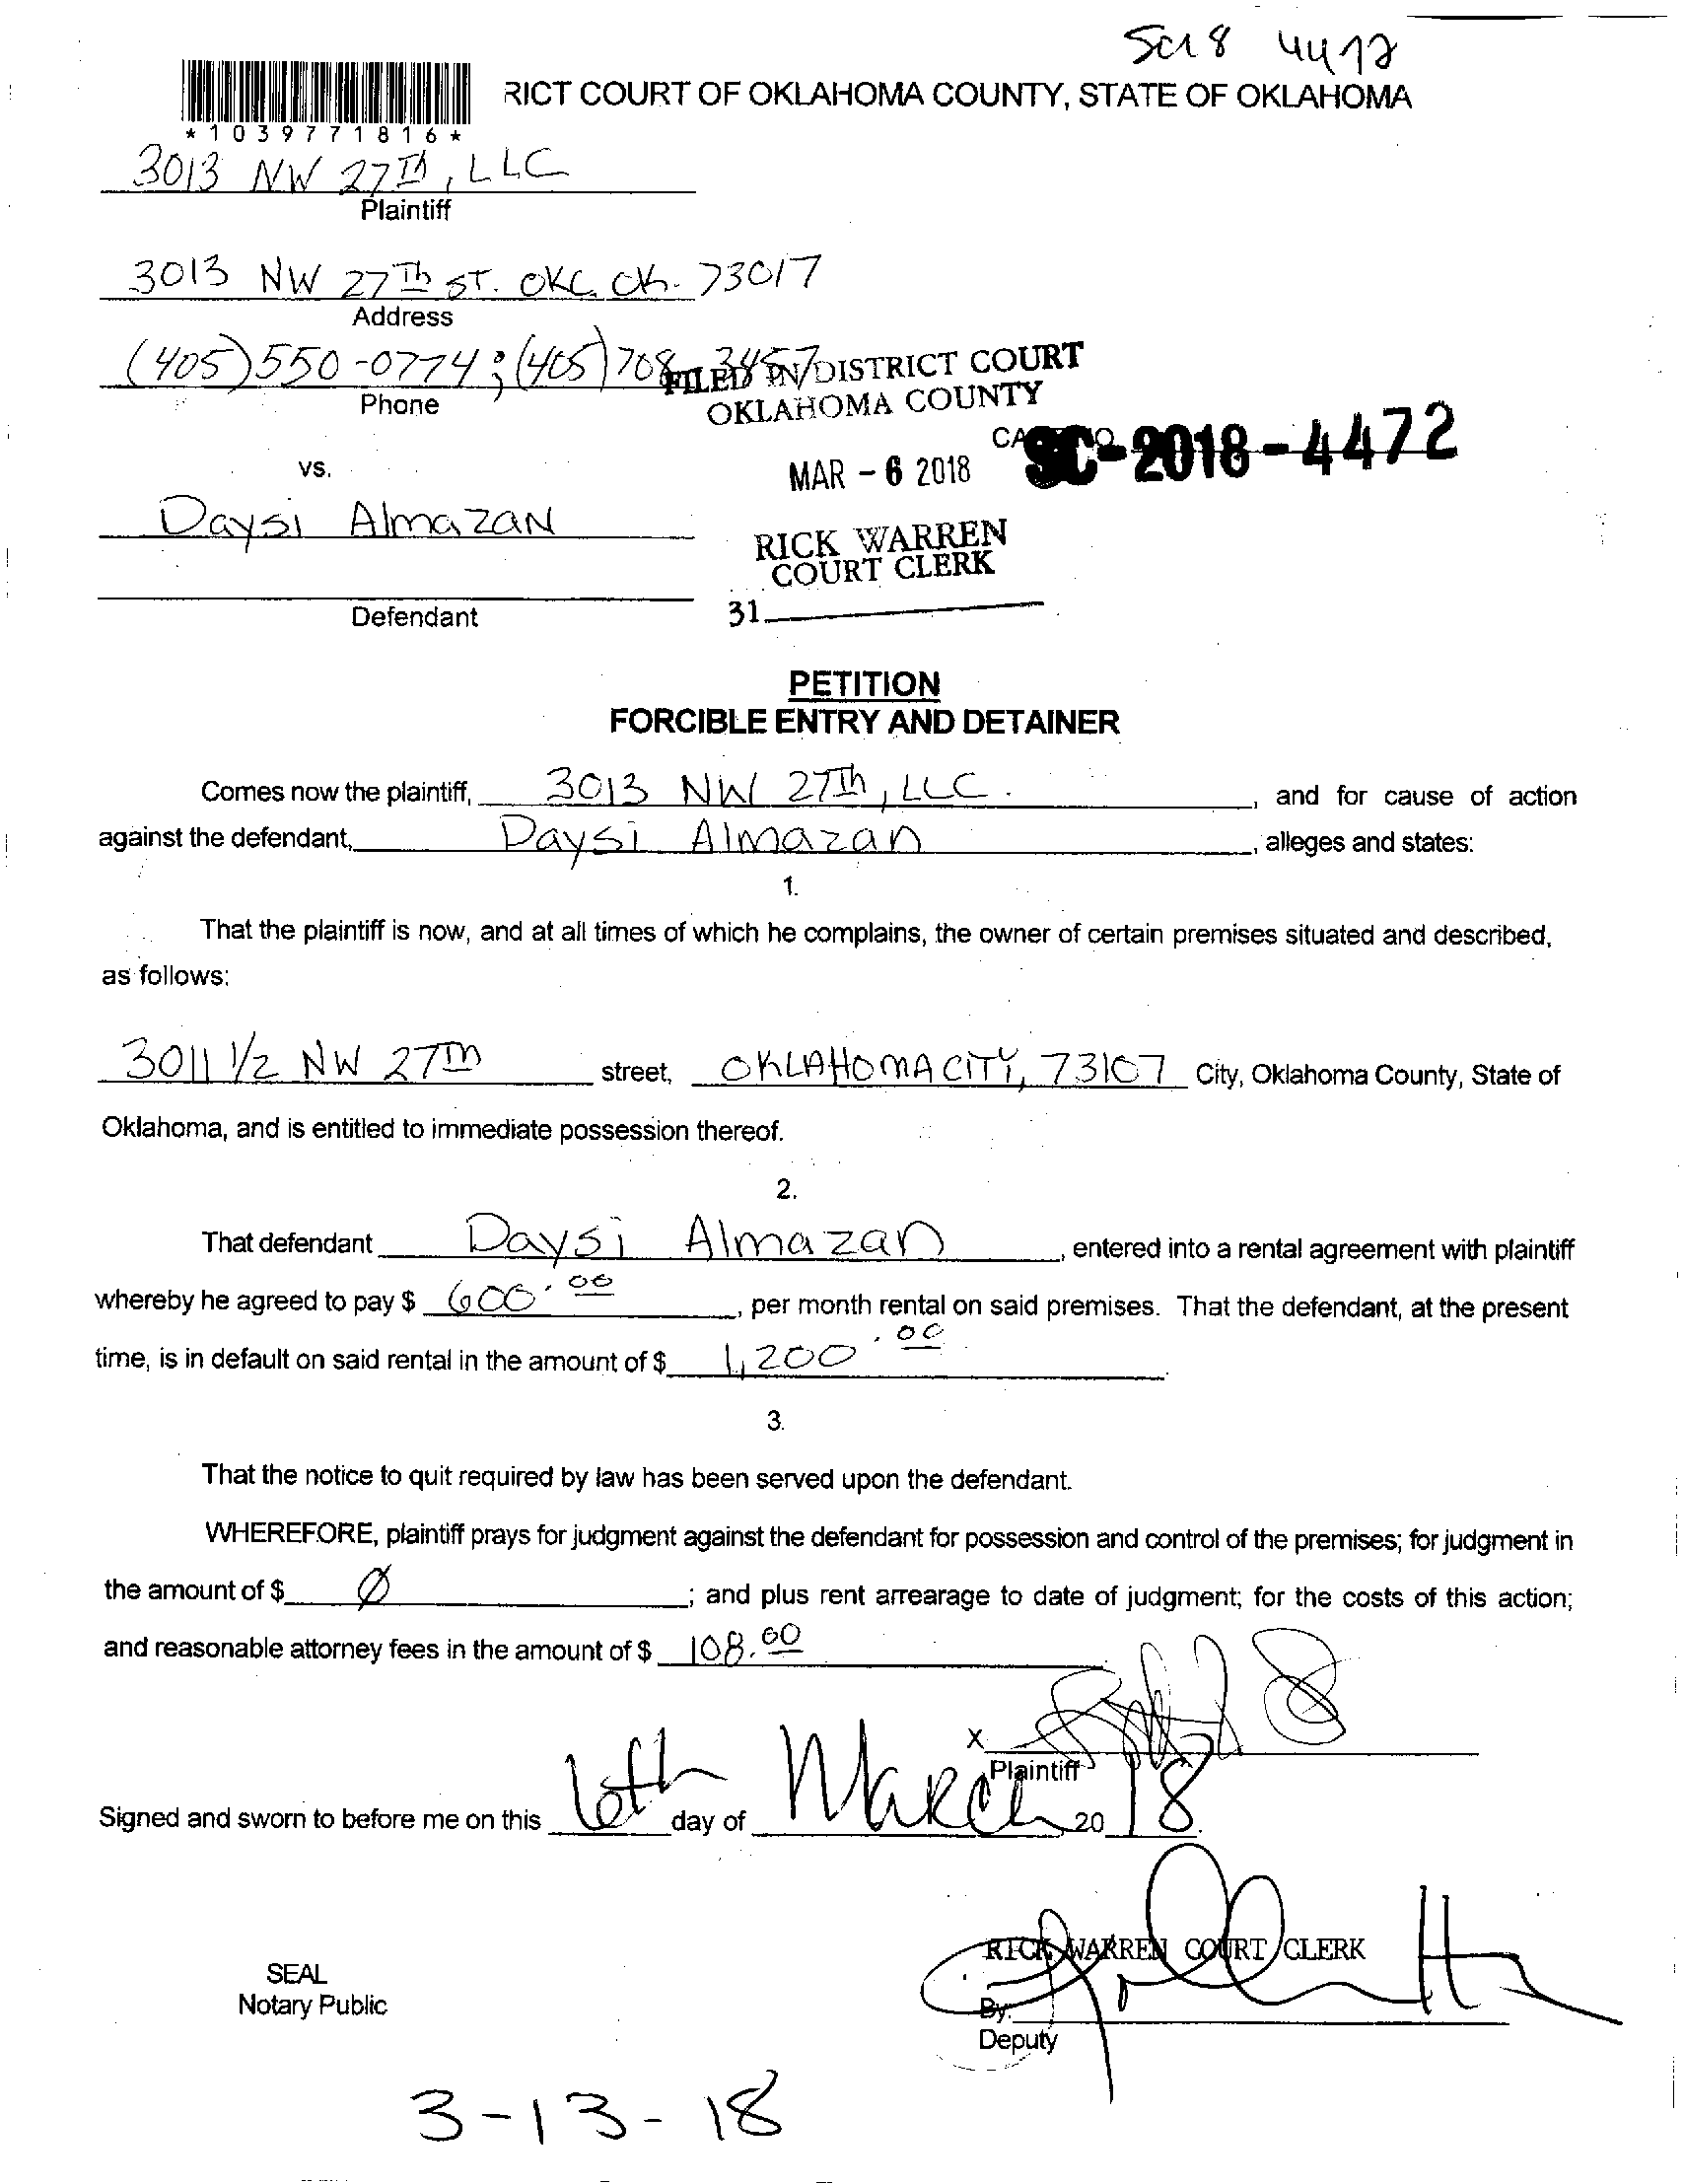 SC18 4472
RICT COURT OF OKLAHOMA COUNTY, STATE OF OKLAHOMA
*1039771816*
3013 NW 27Th, LLC
Plaintiff
3013 NW 27Th ST. OKC. Ok. 73017
Address
(405)550-0774; (405)708-3457
FILED IN DISTRICT COURT
Phone
OKLAHOMA COUNTY
SC-2018-4472
vs.
MAR - 6 2018
Daysi Almazan
RICK WARREN
COURT CLERK
Defendant
31
PETITION
FORCIBLE ENTRY AND DETAINER
Comes now the plaintiff, 3013 NW 27Th, LLC. , and for cause of action
against the defendant, Daysi Almazan , alleges and states:
1.
That the plaintiff is now, and at all times of which he complains, the owner of certain premises situated and described,
as follows:
3011 1/2 NW 27Th street, OKLAHOMA CITY, 73107 City, Oklahoma County, State of
Oklahoma, and is entitled to immediate possession thereof.
2.
That defendant Daysi Almazan , entered into a rental agreement with plaintiff
whereby he agreed to pay $ 600.00 , per month rental on said premises. That the defendant, at the present
time, is in default on said rental in the amount of $ 1,200.00
3.
That the notice to quit required by law has been served upon the defendant.
WHEREFORE, plaintiff prays for judgment against the defendant for possession and control of the premises; for judgment in
the amount of $ Ø ; and plus rent arrearage to date of judgment; for the costs of this action;
and reasonable attorney fees in the amount of $ 108.00
X
Plaintiff
Signed and sworn to before me on this 6th day of March 20 18.
RICK WARREN COURT CLERK
SEAL
Notary Public
By:
Deputy
3-13-18